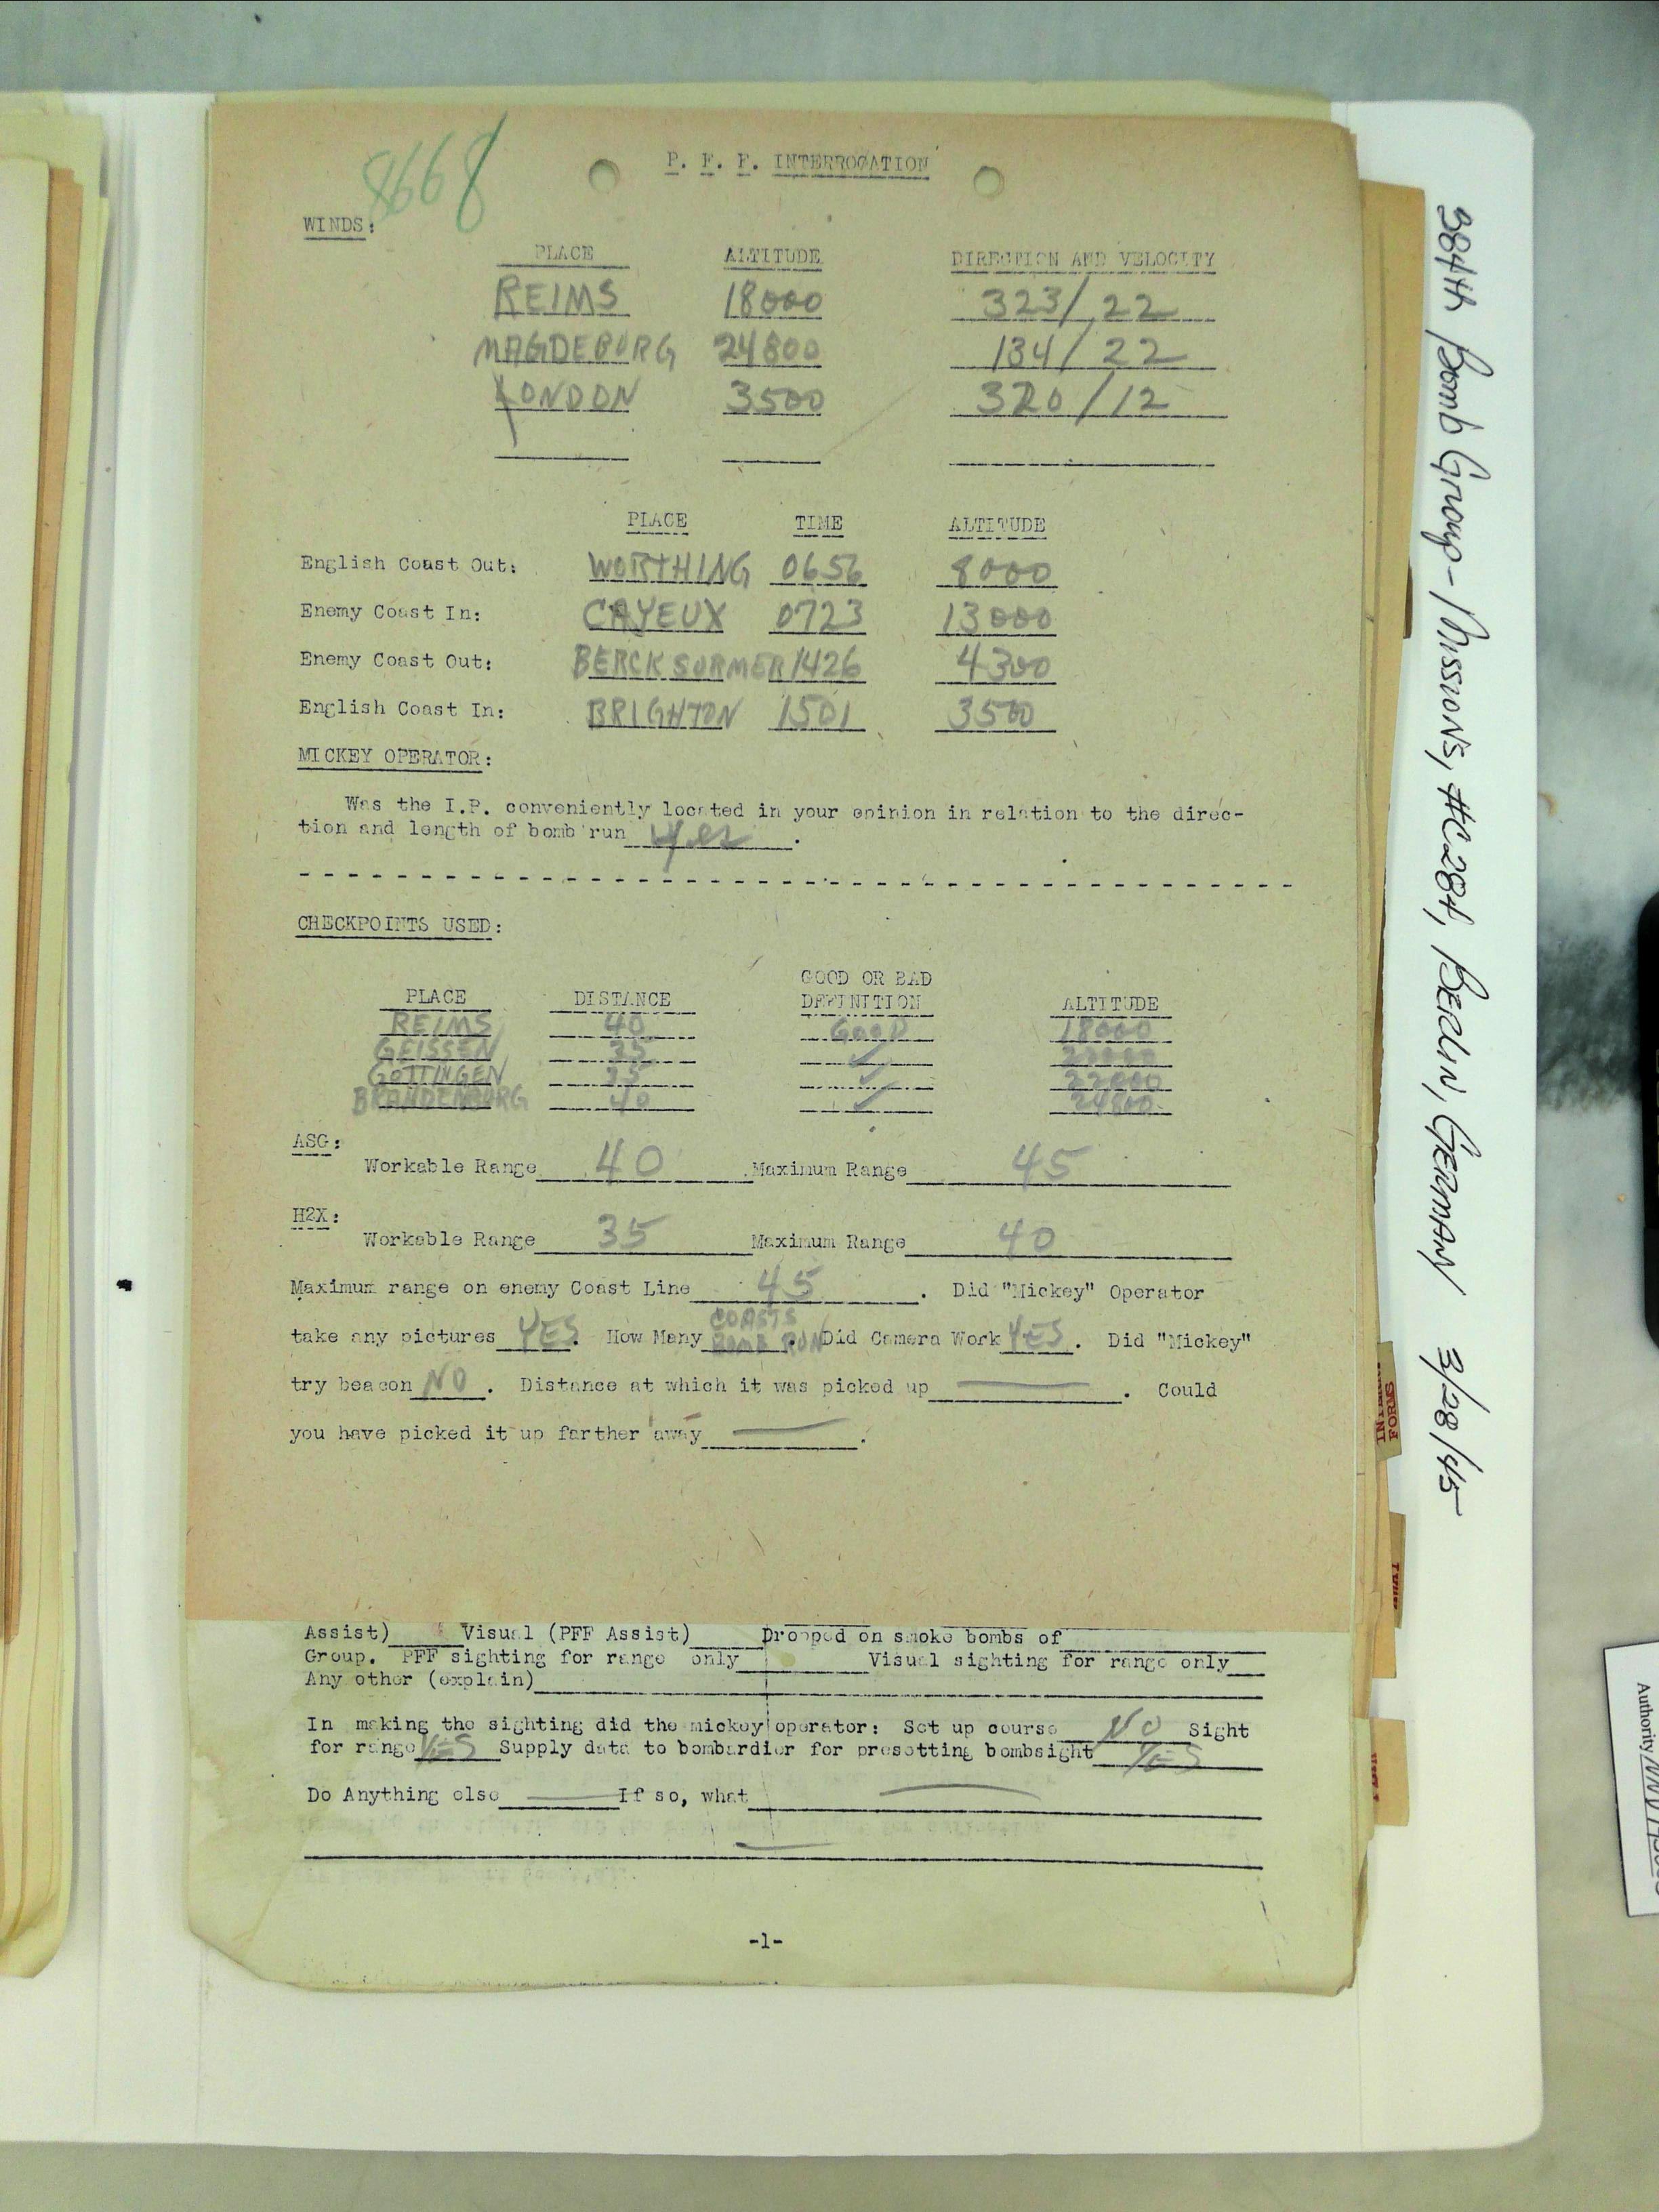 8668
P. F. F. INTERROGATION
WINDS:
PLACE ALTITUDE DIRECTION AND VELOCITY
REIMS 18000 323/22
MAGDEBURG 24800 134/22
LONDON 3500 320/12
PLACE TIME ALTITUDE
English Coast Out: WORTHING 0656 8000
Enemy Coast In: CAYEUX 0723 13000
Enemy Coast Out: BERCK SURMER 1426 4300
English Coast In: BRIGHTON 1501 3500
MICKEY OPERATOR:
Was the I.P. conveniently located in your opinion in relation to the direc-
tion and length of bomb run yes.
CHECKPOINTS USED:
GOOD OR BAD
PLACE DISTANCE DEFINITION ALTITUDE
REIMS 40 GOOD 18000
GEISSEN 35 ✓
GOTTINGEN 35 ✓ 22000
BRANDENBURG 40 ✓ 24800
ASG:
Workable Range 40 Maximum Range 45
H2X:
Workable Range 35 Maximum Range 40
Maximum range on enemy Coast Line 45. Did "Mickey" Operator
COASTS
take any pictures YES. How Many BOMB RUN. Did Camera Work YES. Did "Mickey"
try beacon NO. Distance at which it was picked up —. Could
you have picked it up farther away —.
Assist) Visual (PFF Assist) Dropped on smoke bombs of
Group. PFF sighting for range only Visual sighting for range only
Any other (explain)
In making the sighting did the mickey operator: Set up course NO Sight
for range YES Supply data to bombardier for presetting bombsight YES
Do Anything else — If so, what —
-1-
384th Bomb Group - Missions, #C284, BERLIN, GERMANY 3/28/45
FORMS
Authority